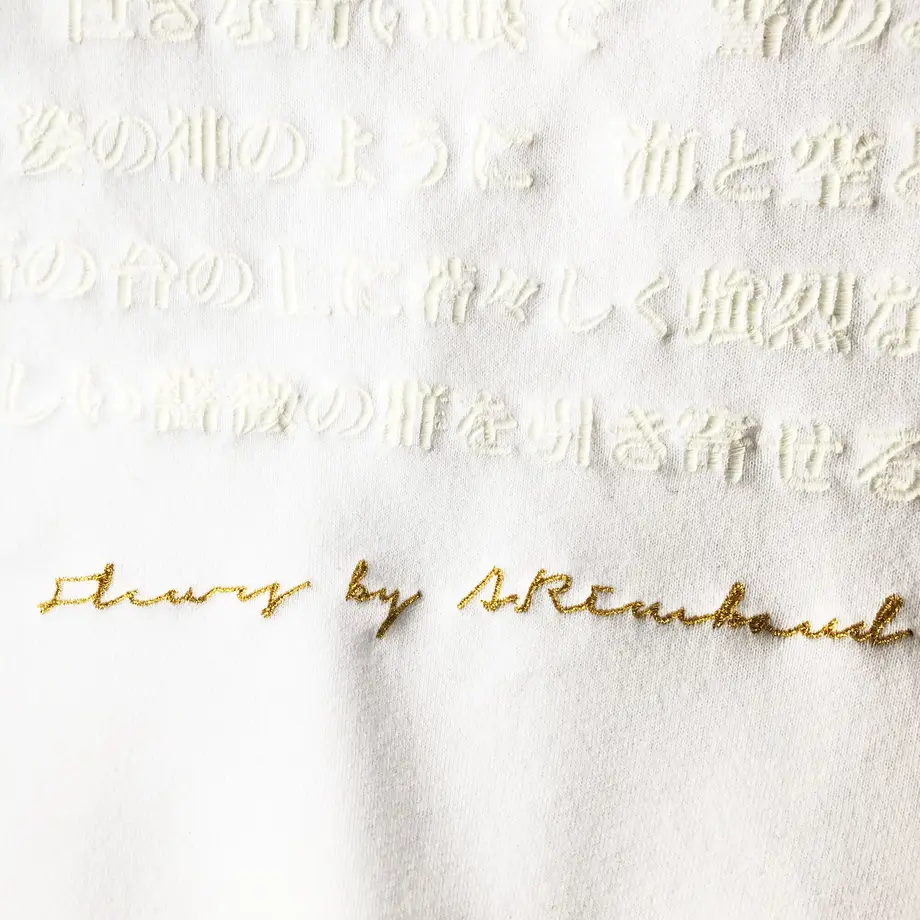 巨きな青い眼で 雪の
姿の神のように 海と空と
の台の上に 若々しく強烈な
しい薔薇の群を引き寄せる
Fleurs by A.Rimbaud